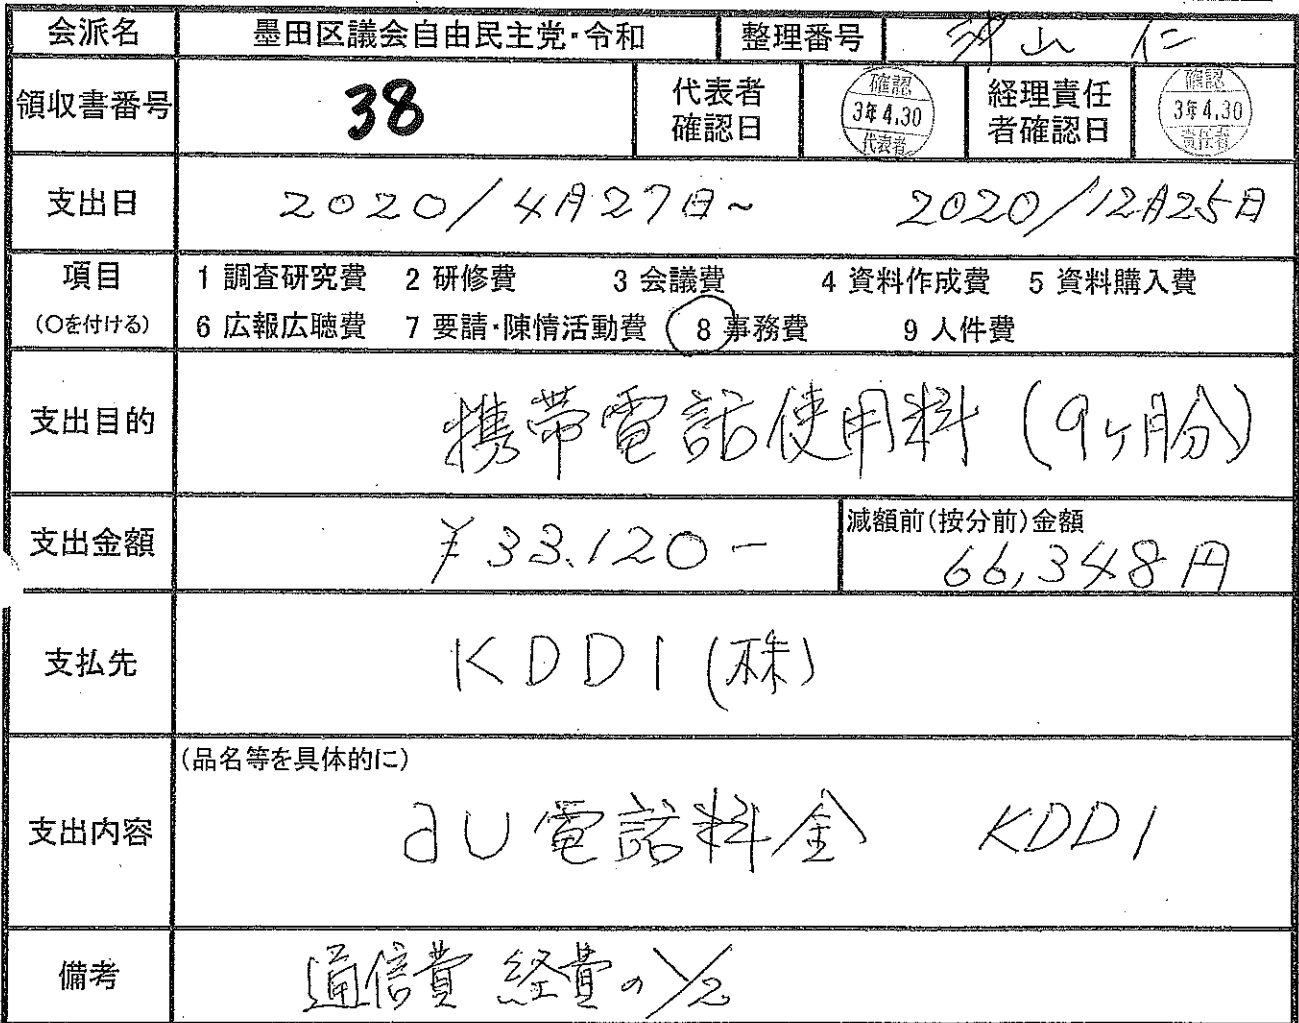 会派名 墨田区議会自由民主党・令和 整理番号 山 仁
領収書番号 38 代表者確認日 確認 3年4.30 代表者 経理責任者確認日 確認 3年4.30 責任者
支出日 2020/4月27日~ 2020/12月25日
項目 1 調査研究費 2 研修費 3 会議費 4 資料作成費 5 資料購入費
(○を付ける) 6 広報広聴費 7 要請・陳情活動費 8 事務費 9 人件費
支出目的 携帯電話使用料(9ヶ月分)
支出金額 ¥33.120- 減額前(按分前)金額
66,348円
支払先 KDDI(株)
(品名等を具体的に)
支出内容 au電話料金 KDDI
備考 通信費 経費の1/2